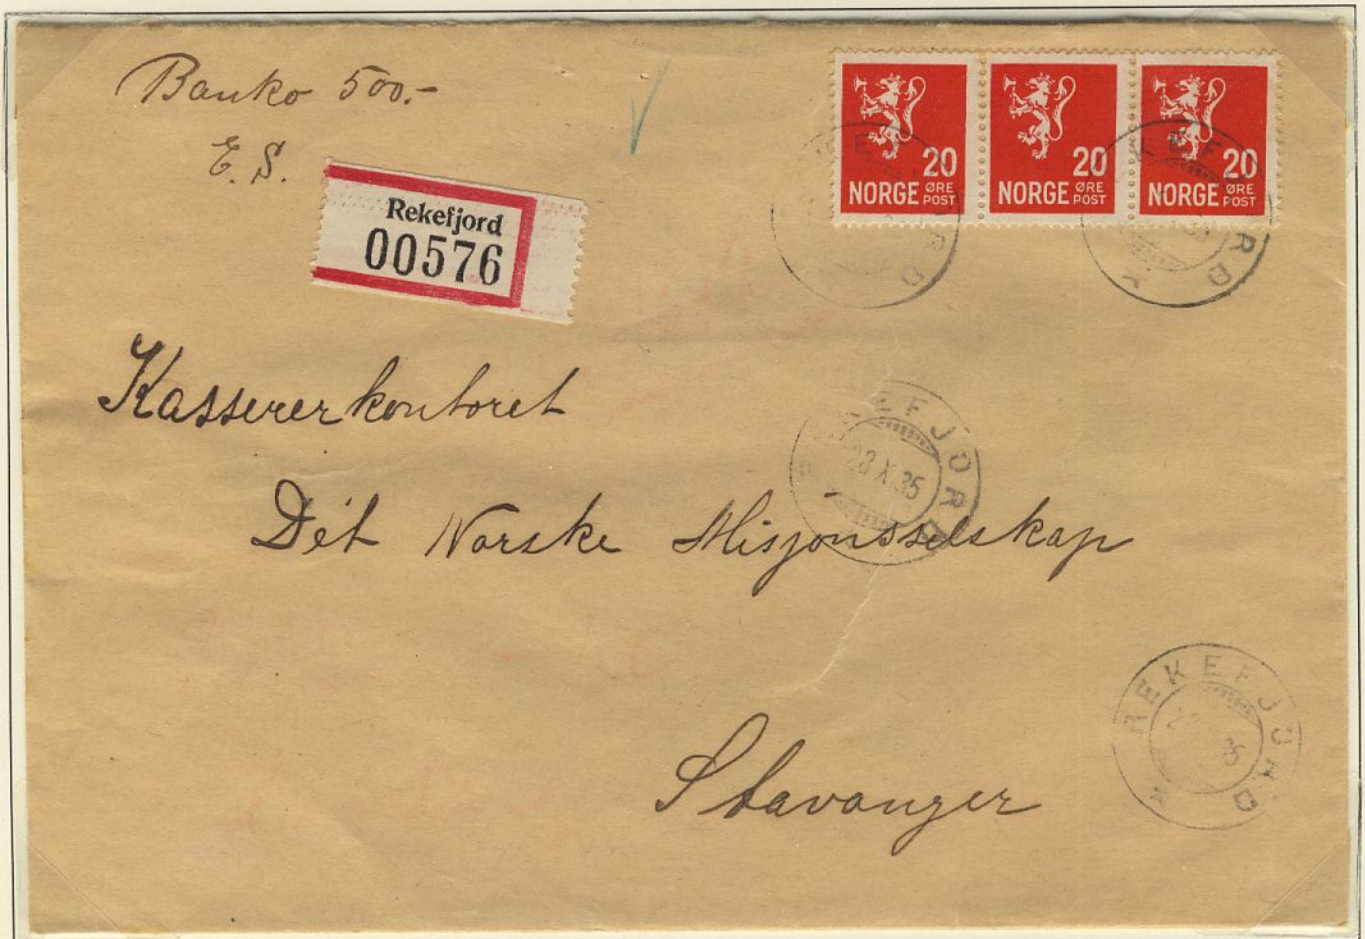 Banko 500.-
E. S.
Rekefjord
00576
20
NORGE ØRE POST
20
NORGE ØRE POST
20
NORGE ØRE POST
Kassererkontoret
Dét Norske Misjonsselskap
Stavanger
REKEFJORD
23 X 35
REKEFJORD